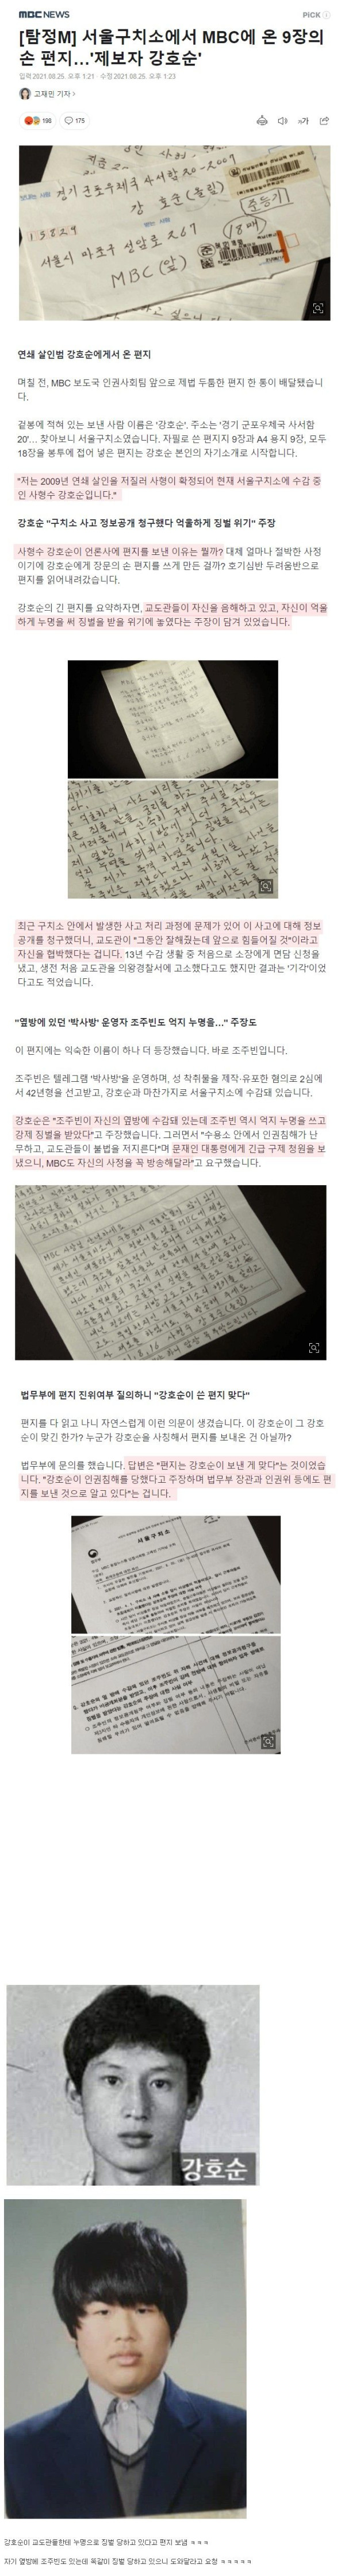 MBC NEWS
PiCK
[탐정M] 서울구치소에서 MBC에 온 9장의
손 편지…'제보자 강호순'
입력 2021.08.25. 오후 1:21 · 수정 2021.08.25. 오후 1:23
고재민 기자 >
198
175
가가
경기 군포우체국 사서함 20-2009
강 호순 (올림)
15829
서울시 마포구 성암로 267
MBC (앞)
(18매)
준등기
연쇄 살인범 강호순에게서 온 편지
며칠 전, MBC 보도국 인권사회팀 앞으로 제법 두툼한 편지 한 통이 배달됐습니
다.
겉봉에 적혀 있는 보낸 사람 이름은 '강호순'. 주소는 '경기 군포우체국 사서함
20'… 찾아보니 서울구치소였습니다. 자필로 쓴 편지지 9장과 A4 용지 9장, 모두
18장을 봉투에 접어 넣은 편지는 강호순 본인의 자기소개로 시작합니다.
"저는 2009년 연쇄 살인을 저질러 사형이 확정되어 현재 서울구치소에 수감 중
인 사형수 강호순입니다."
강호순 "구치소 사고 정보공개 청구했다 억울하게 징벌 위기" 주장
사형수 강호순이 언론사에 편지를 보낸 이유는 뭘까? 대체 얼마나 절박한 사정
이기에 강호순에게 장문의 손 편지를 쓰게 만든 걸까? 호기심반 두려움반으로
편지를 읽어내려갔습니다.
강호순의 긴 편지를 요약하자면, 교도관들이 자신을 음해하고 있고, 자신이 억울
하게 누명을 써 징벌을 받을 위기에 놓였다는 주장이 담겨 있었습니다.
최근 구치소 안에서 발생한 사고 처리 과정에 문제가 있어 이 사고에 대해 정보
공개를 청구했더니, 교도관이 "그동안 잘해줬는데 앞으로 힘들어질 것"이라고
자신을 협박했다는 겁니다. 13년 수감 생활 중 처음으로 소장에게 면담 신청을
냈고, 생전 처음 교도관을 의왕경찰서에 고소했다고도 했지만 결과는 '기각'이었
다고도 적었습니다.
"옆방에 있던 '박사방' 운영자 조주빈도 억지 누명을…" 주장도
이 편지에는 익숙한 이름이 하나 더 등장했습니다. 바로 조주빈입니다.
조주빈은 텔레그램 '박사방'을 운영하며, 성 착취물을 제작·유포한 혐의로 2심에
서 42년형을 선고받고, 강호순과 마찬가지로 서울구치소에 수감돼 있습니다.
강호순은 "조주빈이 자신의 옆방에 수감돼 있는데 조주빈 역시 억지 누명을 쓰고
강제 징벌을 받았다"고 주장했습니다. 그러면서 "수용소 안에서 인권침해가 난
무하고, 교도관들이 불법을 저지른다"며 문재인 대통령에게 긴급 구제 청원을 보
냈으니, MBC도 자신의 사정을 꼭 방송해달라"고 요구했습니다.
법무부에 편지 진위여부 질의하니 "강호순이 쓴 편지 맞다"
편지를 다 읽고 나니 자연스럽게 이런 의문이 생겼습니다. 이 강호순이 그 강호
순이 맞긴 한가? 누군가 강호순을 사칭해서 편지를 보내온 건 아닐까?
법무부에 문의를 했습니다. 답변은 "편지는 강호순이 보낸 게 맞다"는 것이었습
니다. "강호순이 인권침해를 당했다고 주장하며 법무부 장관과 인권위 등에도 편
지를 보낸 것으로 알고 있다"는 겁니다.
서울구치소
강호순
강호순이 교도관들한테 누명으로 징벌 당하고 있다고 편지 보냄 ㅋㅋㅋ
자기 옆방에 조주빈도 있는데 똑같이 징벌 당하고 있으니 도와달라고 요청 ㅋㅋㅋㅋㅋ